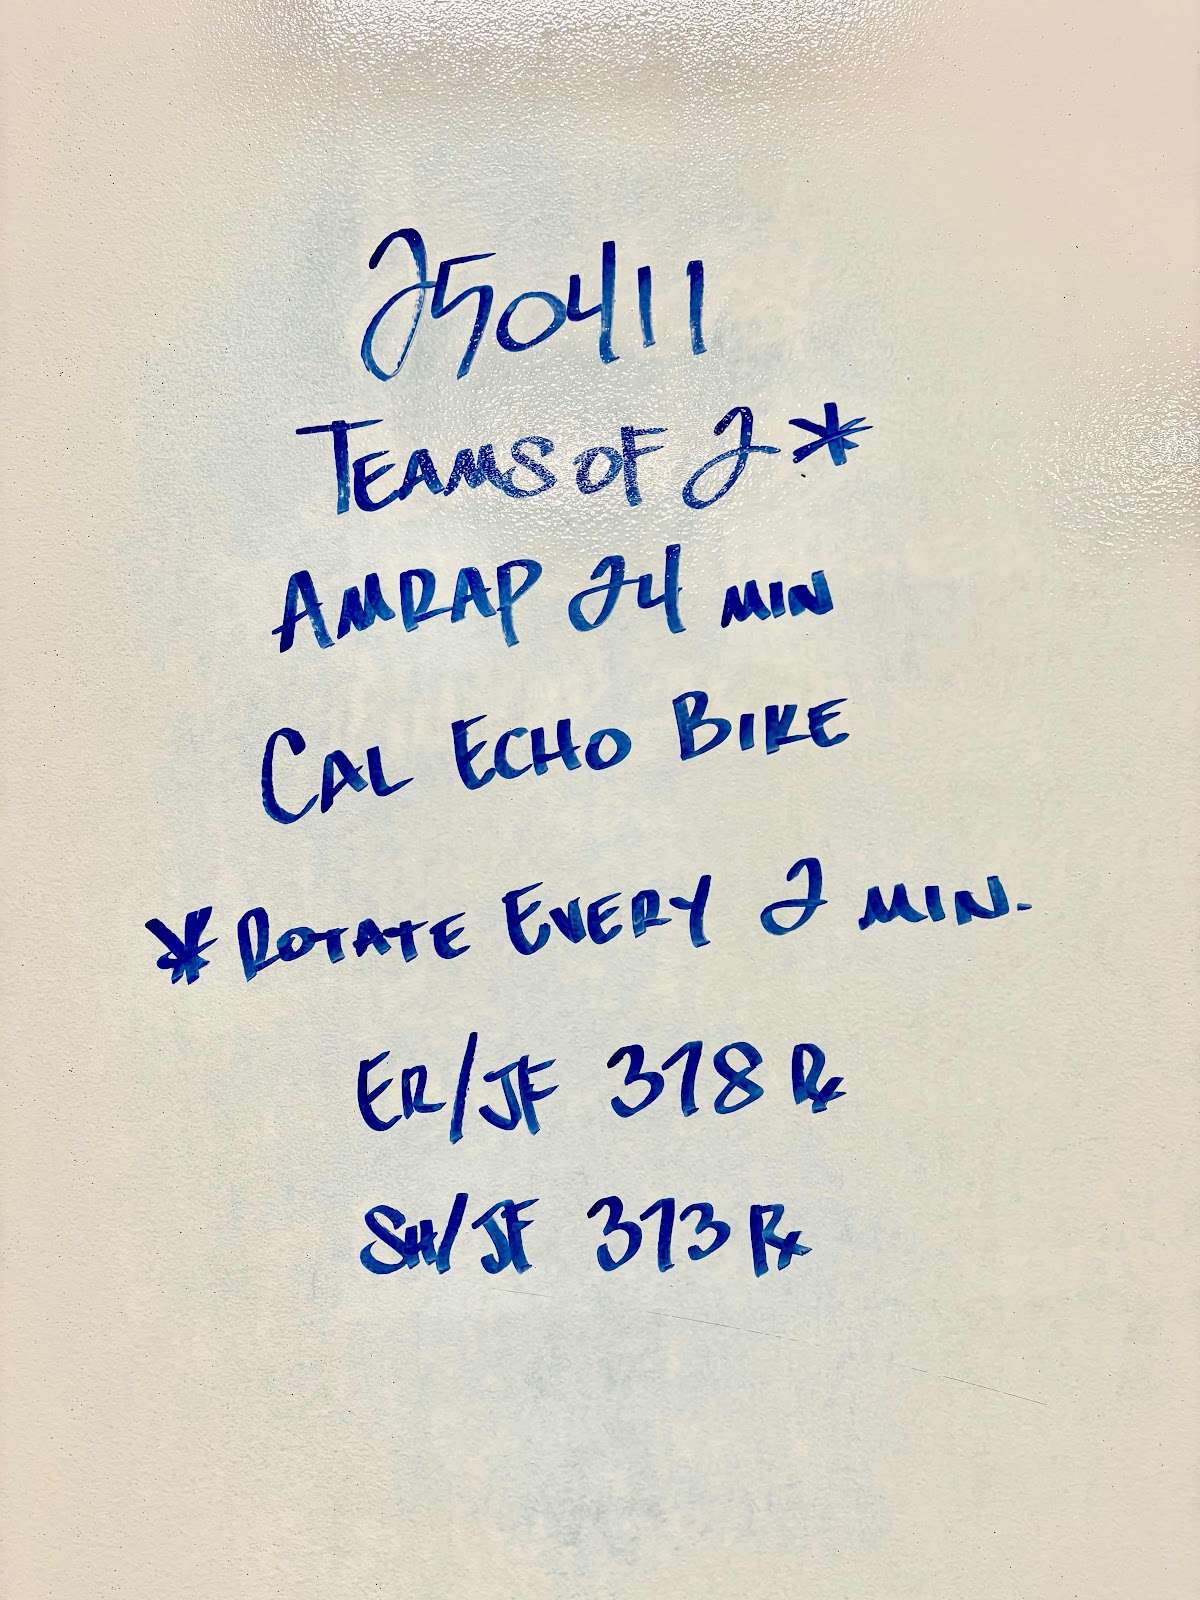 250411
TEAMS OF 2*
AMRAP 24 MIN
CAL ECHO BIKE
*ROTATE EVERY 2 MIN.
ER/JF 378 Rx
SH/JF 373 Rx